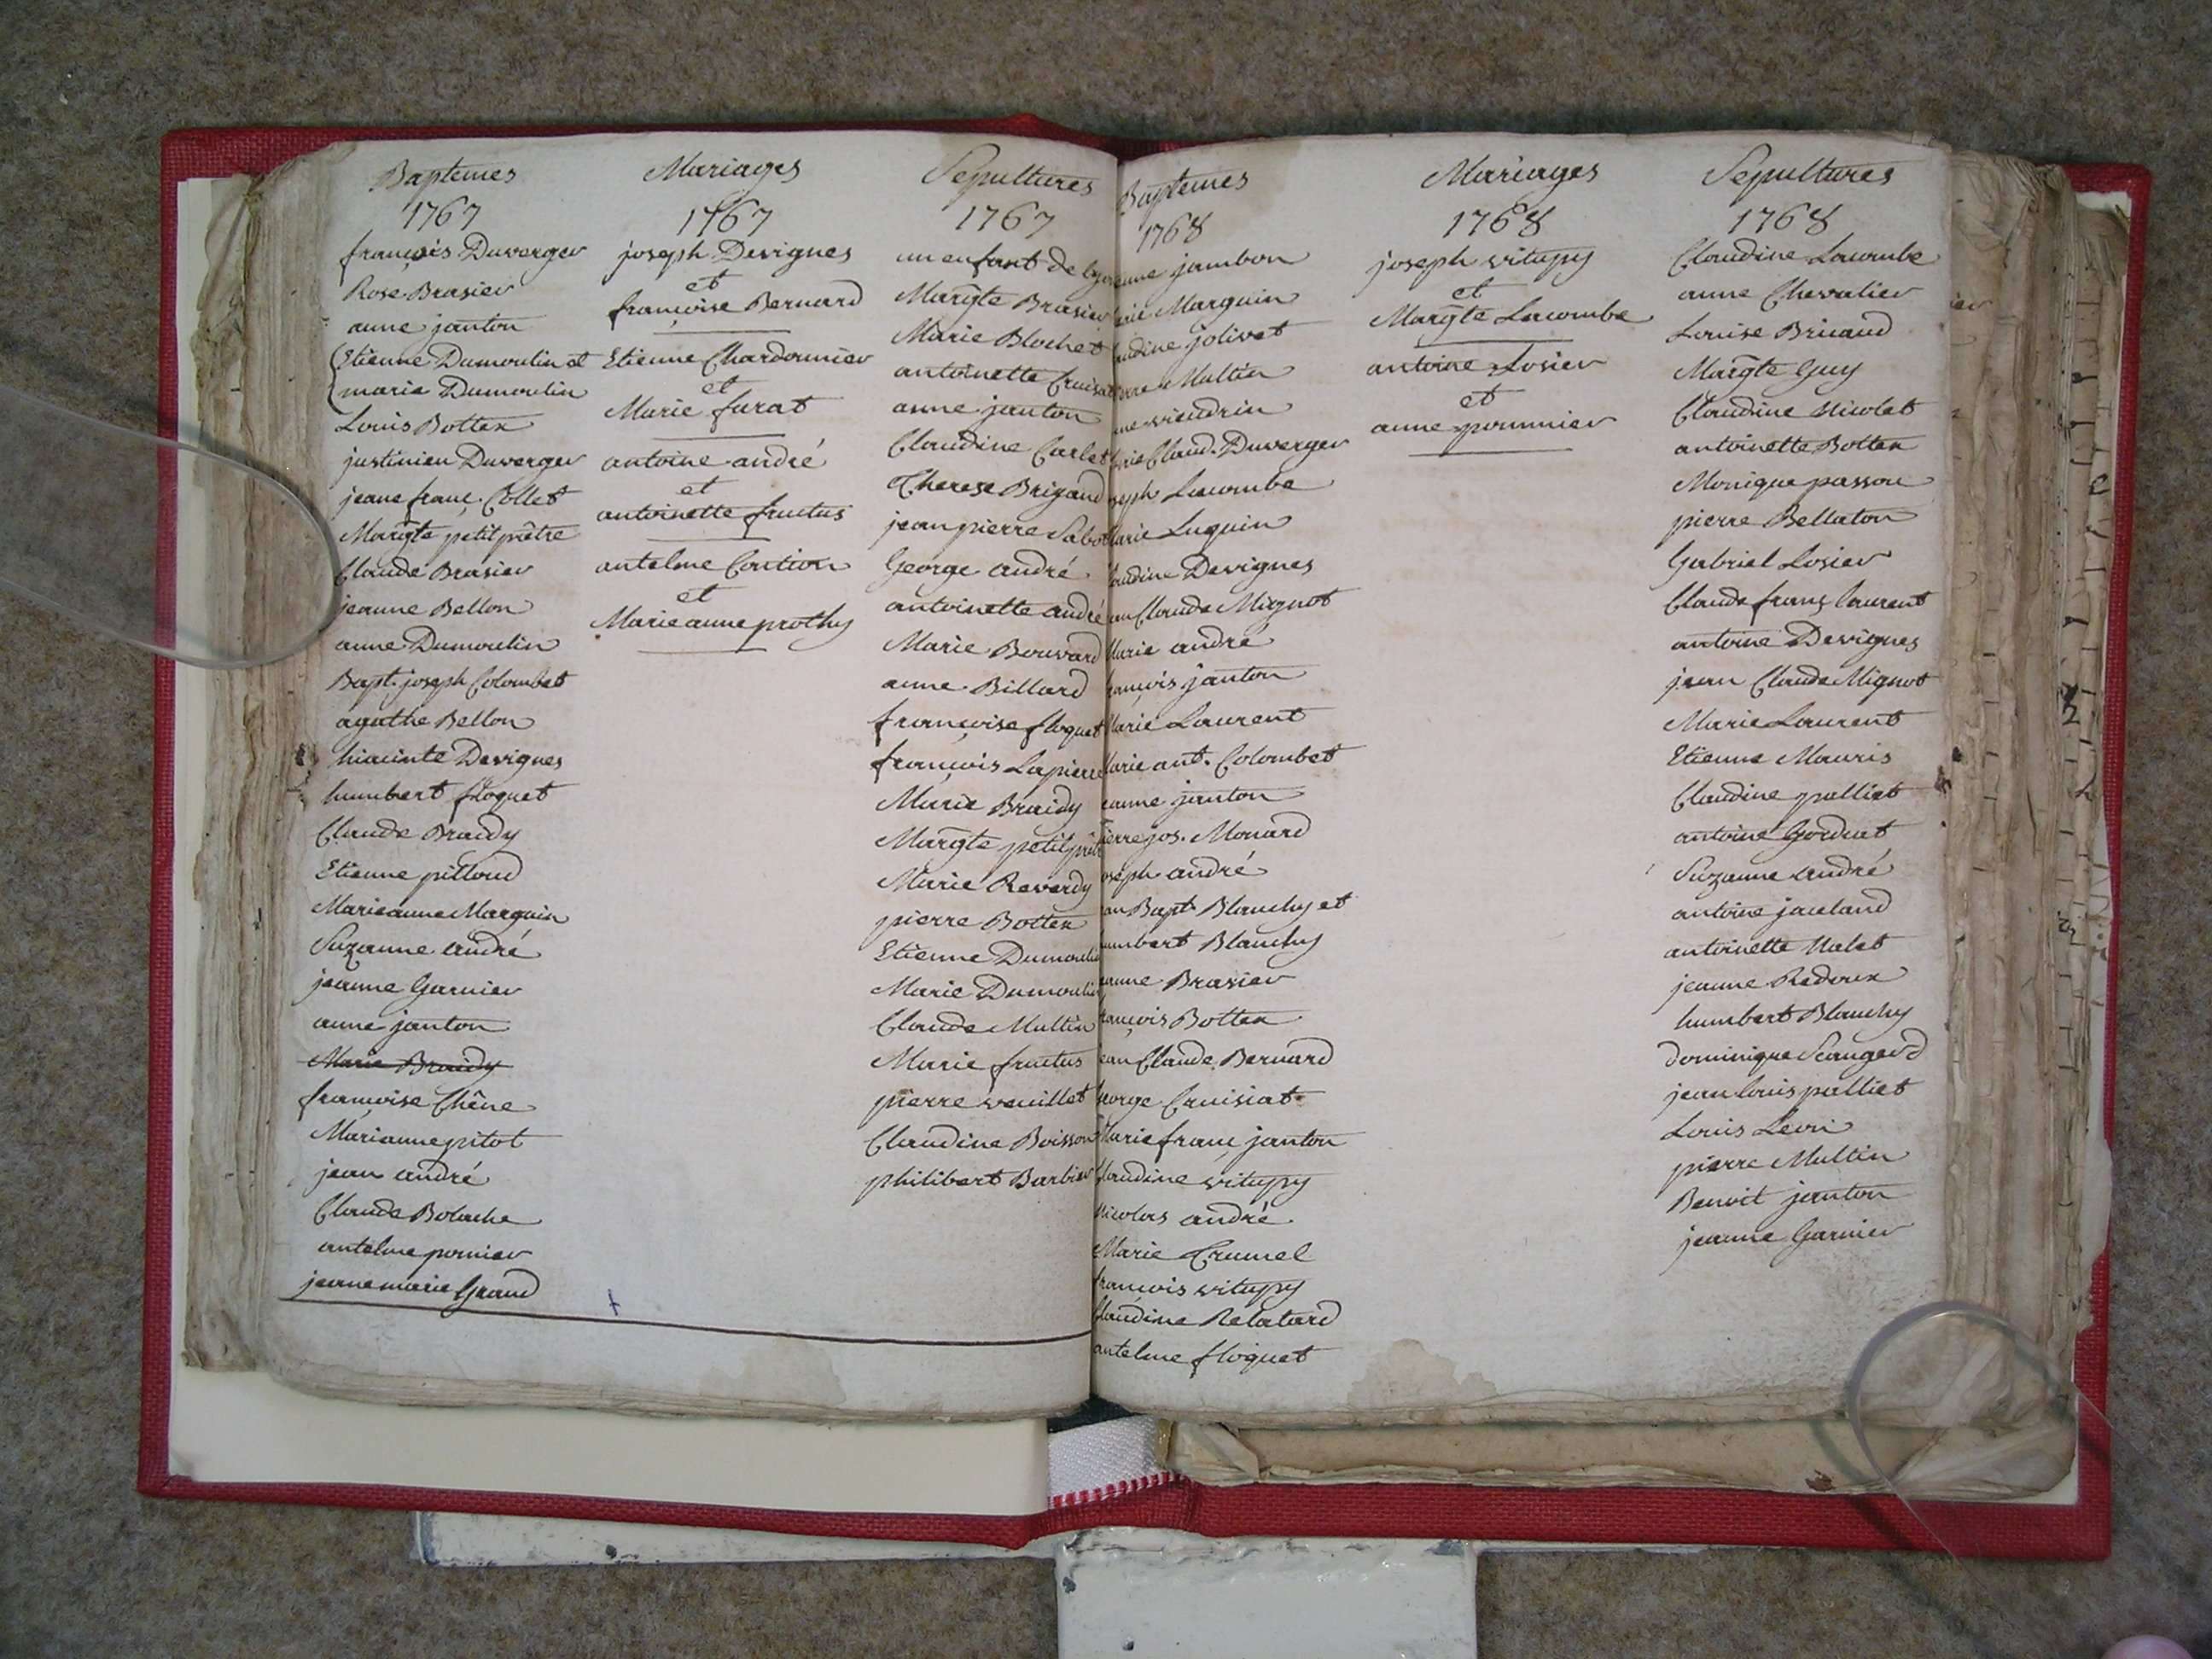 Baptemes
1767
françois Duverger
Rose Brasier
anne janton
Etienne Dumoulin et
marie Dumoulin
Louis Bottex
justinien Duverger
jeane franç. Collet
Margte petitprêtre
Claude Brasier
jeanne Bellon
anne Dumoulin
Bapt. joseph Colombet
agathe Bellon
hiacinte Devignes
humbert floquet
Claude Braidy
Etienne pittoud
Marieanne Marguin
Suzanne andré
jeanne Garnier
anne janton
Marie Braidy
françoise Chêne
Marianne pitot
jean andré
Claude Bolache
antelme pornier
jeanne marie Grand
Mariages
1767
joseph Devignes
et
françoise Bernard
Etienne Chardonnier
et
Marie furat
antoine andré
et
antoinette fructus
antelme Contion
et
Marieanne prothy
Sepultures
1767
un enfant de
Margte Brasier
Marie Blochet
antoinette
anne janton
Claudine Carlet
Therese Brigand
jean pierre Sabot
George andré
antoinette andré
Marie Bouvard
anne Billard
françoise floquet
françois Lapierre
Marie Braidy
Margte petitprêt
Marie Reverdy
pierre Bottex
Etienne Dumoulin
Marie Dumoulin
Claude Multin
Marie fructus
pierre veuillet
Claudine Boisson
philibert Barbier
Baptemes
1768
jambon
Marguin
jolivet
Multin
vieudrin
Claud. Duverger
Lacombe
Luquin
Devignes
Claude Mignot
Marie andré
françois janton
Marie Laurent
Marie ant. Colombet
janton
pierre jos. Monard
andré
Bapt. Blanchy et
Blanchy
Brasier
françois Bottex
Claude Bernard
George Cruisiat
Marie franç janton
Claudine vitupy
Nicolas andré
Marie Trumel
françois vitupy
Claudine Relatard
antelme floquet
Mariages
1768
joseph vitupy
et
Margte Lacombe
antoine Losier
et
anne pommier
Sepultures
1768
Claudine Lacombe
anne Chevalier
Louise Bricaud
Margte Guy
Claudine Nicolet
antoinette Bottex
Monique passon
pierre Bellaton
Gabriel Losier
Claude franç laurent
antoine Devignes
jean Claude Mignot
Marie Laurent
Etienne Mauris
Claudine palliet
antoine Gorduet
Suzanne andré
antoine jaceland
antoinette Nalet
jeanne Redoux
humbert Blanchy
dominique Scangerd
jean louis palliet
Louis Levri
pierre Multin
Benoit janton
jeanne Garnier